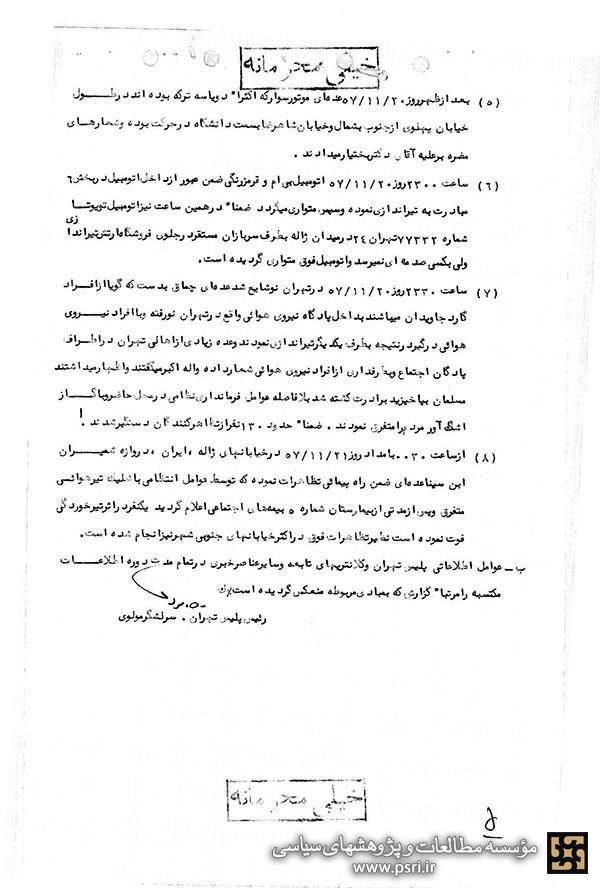 خیلی محرمانه
(۵) بعد ازظهرروز ۵۷/۱۱/۲۰عده‌ای موتورسوارکه اکثرا" دوپاسه ترکه بوده اند درطول
خیابان پهلوی ازجنوب بشمال وخیابان شاهرضا بسمت دانشگاه درحرکت بوده وشعارهای
مضره برعلیه آقای دکتربختیارمیدادند .
(۶) ساعت ۲۳۰۰روز ۵۷/۱۱/۲۰ اتومبیل بی ام و قرمزرنگی ضمن عبور ازداخل اتومبیل دربخش ۶
مبادرت به تیراندازی نموده وسپس متواری میگردد ضمنا" درهمین ساعت نیزاتومبیل تویوتا
شماره ۷۷۳۳۲تهران ۲۴ درمیدان ژاله بطرف سربازان مستقردرجلوی فروشگاه ارتش تیراندازی
ولی بکسی صدمه ای نمیرسد واتومبیل فوق متواری گردیده است .
(۷) ساعت ۲۳۳۰روز ۵۷/۱۱/۲۰ درتهران نو شایع شد عده‌ای چماق بدست که گویا ازافراد
گارد جاویدان میباشند بداخل پادگاه نیروی هوائی واقع درتهران نورفته وباافراد نیروی
هوائی درگیر درنتیجه بطرف یکدیگرتیراندازی نمودند وعده زیادی ازاهالی تهران دراطراف
پادگان اجتماع وبطرفداری ازافراد نیروی هوائی شعار داده واله اکبرمیگفتند واظهارمیداشتند
مسلمان بپاخیزید برادرت کشته شد بلافاصله عوامل فرمانداری نظامی درمحل حاضروباگاز
اشگ آور مردم رامتفرق نمودند . ضمنا" حدود ۱۳۰نفرازتظاهرکنندگان دستگیرشدند .
(۸) ازساعت ۰۰۳۰بامداد روز ۵۷/۱۱/۲۱ درخیابانهای ژاله ،ایران ،دروازه شمیران
ابن سیناعده‌ای ضمن راه پیمائی تظاهرات نموده که توسط عوامل انتظامی باشلیک تیرهوائی
متفرق وپس ازمدتی ازبیمارستان شماره ۵ بیمه‌های اجتماعی اعلام گردید یکنفرد راثرتیرخوردگی
فوت نموده است نظیرتظاهرات فوق دراکثرخیابانهای جنوبی شهرنیزانجام شده است .
ب ــ عوامل اطلاعاتی پلیس تهران وکلانتریهای تابعه وسایرعناصرخبری درتمام مدت دوره اطلاعات
مکتسبه رامرتبا" گزارش که بمبادی مربوطه منعکس گردیده است
رئیس پلیس تهران . سرلشگرمولوی
خیلی محرمانه
مؤسسه مطالعات و پژوهشهای سیاسی
www.psri.ir